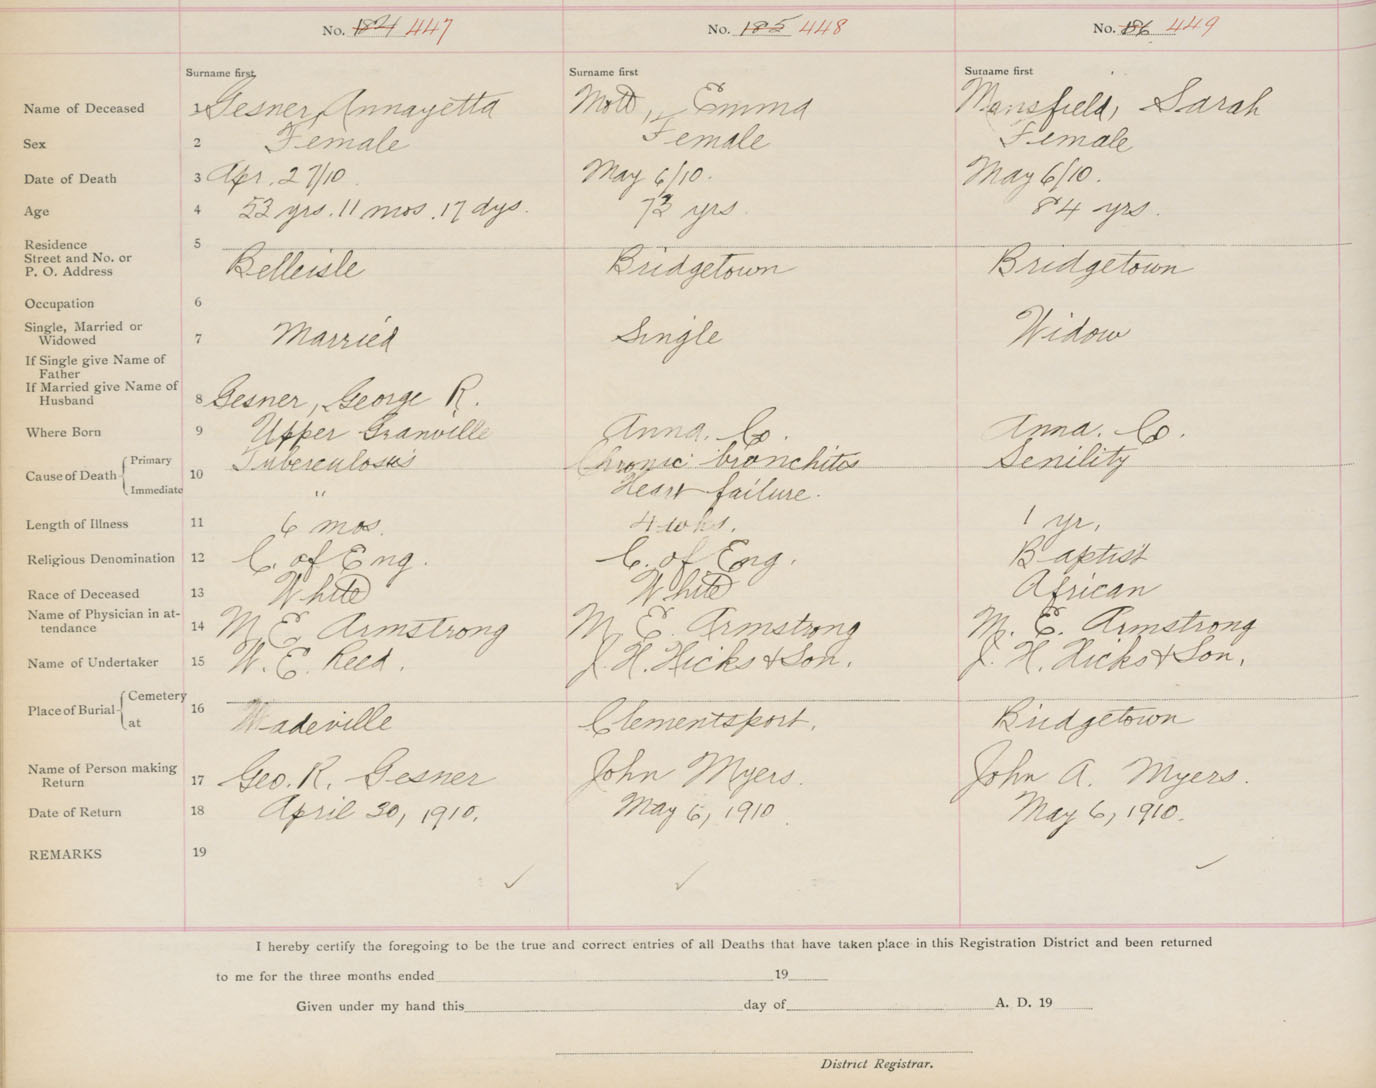 No. 184 447 No. 185 448 No. 186 449
Surname first Surname first Surname first
Name of Deceased 1 Gesner, Annayetta Mott, Emma Mansfield, Sarah
Sex 2 Female Female Female
Date of Death 3 Apr. 27/10. May 6/10. May 6/10.
Age 4 53 yrs. 11 mos. 17 dys. 73 yrs. 84 yrs.
Residence 5
Street and No. or
P. O. Address Belleisle Bridgetown Bridgetown
Occupation 6
Single, Married or
Widowed 7 Married Single Widow
If Single give Name of
Father
If Married give Name of
Husband 8 Gesner, George R.
Where Born 9 Upper Granville Anna. Co. Anna. Co.
Cause of Death Primary 10 Tuberculosis Chronic bronchitis Senility
Immediate " Heart failure.
Length of Illness 11 6 mos. 4 wks. 1 yr.
Religious Denomination 12 C. of Eng. C. of Eng. Baptist
Race of Deceased 13 White White African
Name of Physician in at-
tendance 14 M. E. Armstrong M. E. Armstrong M. E. Armstrong
Name of Undertaker 15 W. E. Reed. J. H. Hicks & Son. J. H. Hicks & Son.
Place of Burial Cemetery 16
at Wadeville Clementsport. Bridgetown
Name of Person making
Return 17 Geo. R. Gesner John Myers. John A. Myers.
Date of Return 18 April 30, 1910. May 6, 1910. May 6, 1910.
REMARKS 19
I hereby certify the foregoing to be the true and correct entries of all Deaths that have taken place in this Registration District and been returned
to me for the three months ended 19
Given under my hand this day of A. D. 19
District Registrar.